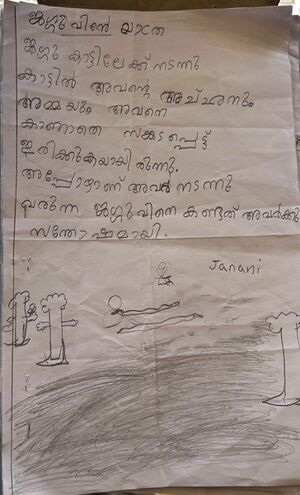 ജഗ്ഗുവിൻ്റെ യാത്ര
ജഗ്ഗു കാട്ടിലേക്ക് നടന്നു
കാട്ടിൽ അവൻ്റെ അച്ഛനും
അമ്മയും അവനെ
കാണാതെ സങ്കടപ്പെട്ട്
ഇരിക്കുകയായിരുന്നു.
അപ്പോഴാണ് അവർ നടന്നു
വരുന്ന ജഗ്ഗുവിനെ കണ്ടത് അവർക്കു
സന്തോഷമായി.
Janani